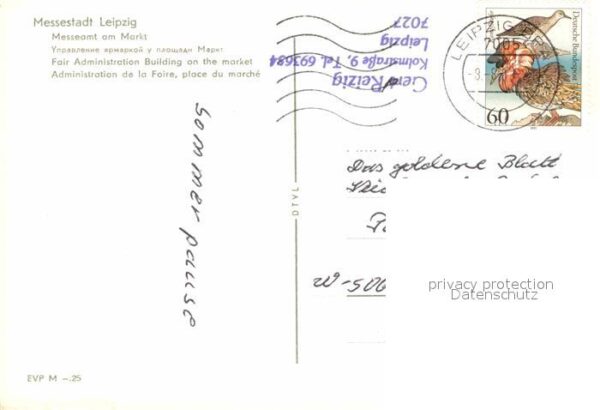 Messestadt Leipzig
Messeamt am Markt
Управление ярмаркой у площади Маркт
Fair Administration Building on the market
Administration de la Foire, place du marché
Sommerpause
EVP M –.25
DTVL
Leipzig
Kolmstraße 9, Tel. 693684
7027
LEIPZIG
7005
Deutsche Bundespost
60
Das goldene Blatt
W-506
privacy protection
Datenschutz